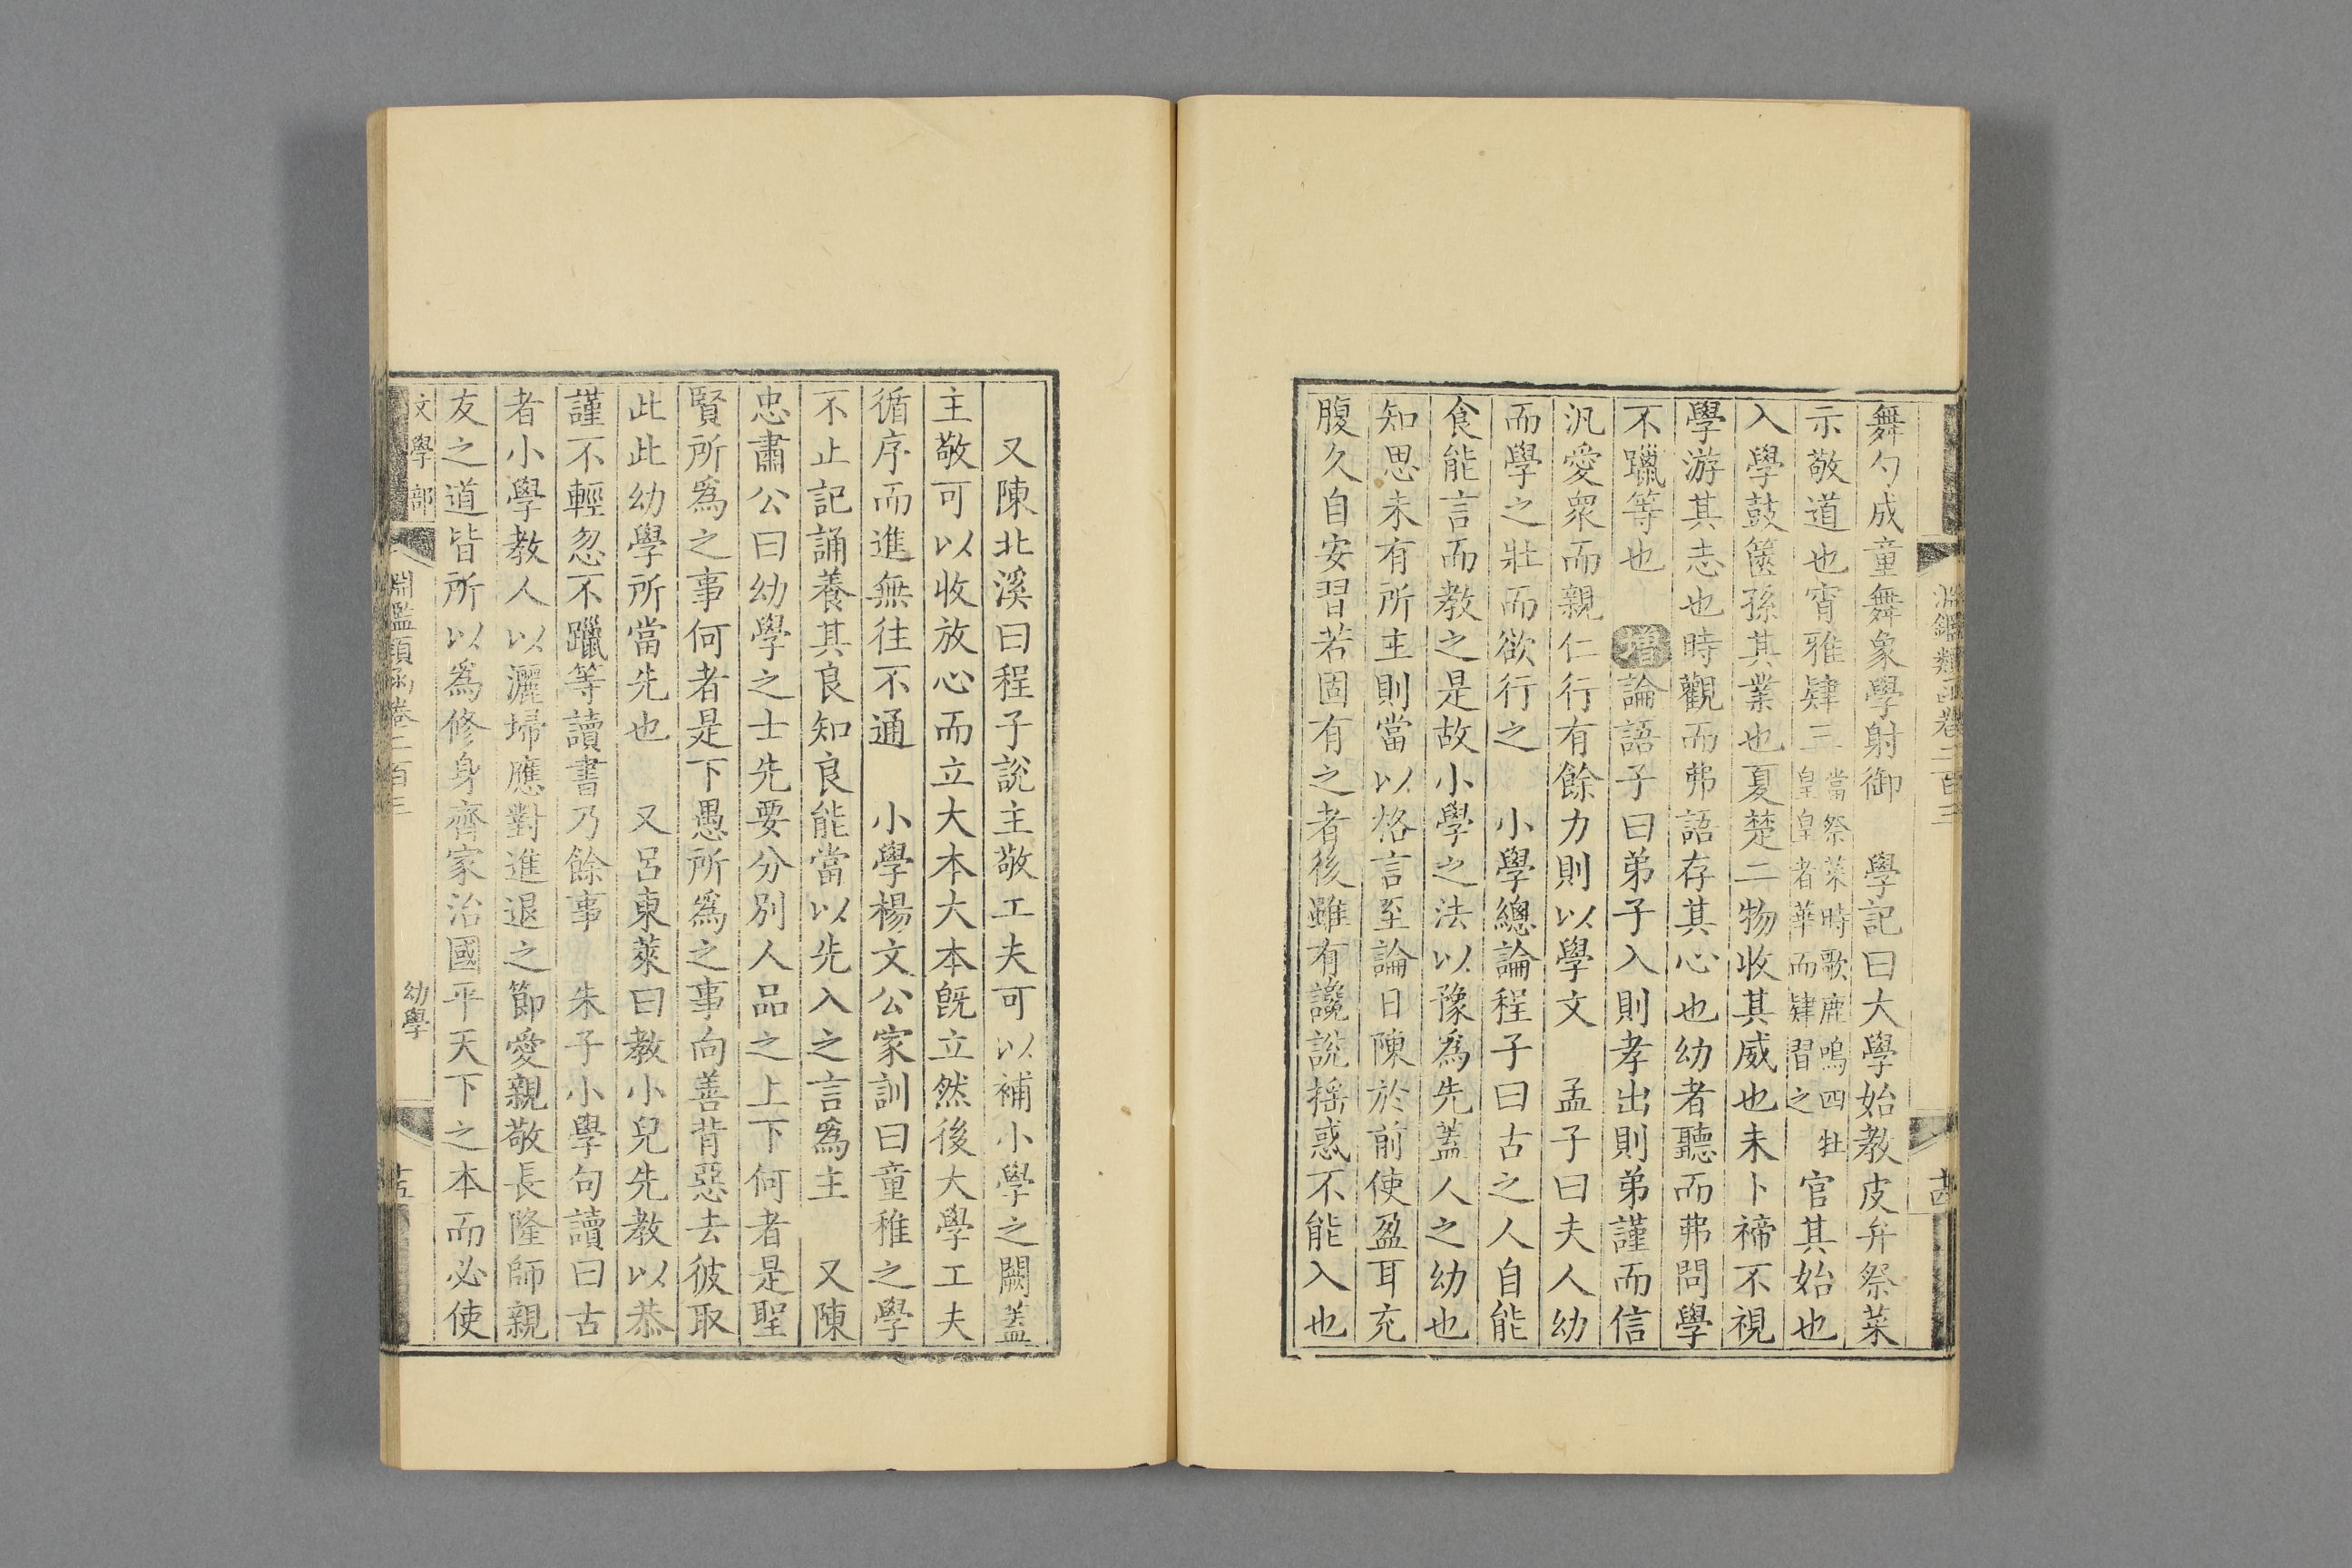 淵鑑類函卷二百三
十四
舞勺成童舞象學射御　學記曰大學始教皮弁祭菜
示敬道也宵雅肄三當祭菜時歌鹿鳴四牡皇皇者華而肄習之官其始也
入學鼓篋孫其業也夏楚二物收其威也未卜禘不視
學游其志也時觀而弗語存其心也幼者聽而弗問學
不躐等也　增論語子曰弟子入則孝出則弟謹而信
汎愛眾而親仁行有餘力則以學文　孟子曰夫人幼
而學之壯而欲行之　小學總論程子曰古之人自能
食能言而教之是故小學之法以豫為先蓋人之幼也
知思未有所主則當以格言至論日陳於前使盈耳充
腹久自安習若固有之者後雖有讒說搖惑不能入也
又陳北溪曰程子說主敬工夫可以補小學之闕蓋
主敬可以收放心而立大本大本既立然後大學工夫
循序而進無往不通　小學楊文公家訓曰童稚之學
不止記誦養其良知良能當以先入之言為主　又陳
忠肅公曰幼學之士先要分別人品之上下何者是聖
賢所為之事何者是下愚所為之事向善背惡去彼取
此此幼學所當先也　又呂東萊曰教小兒先教以恭
謹不輕忽不躐等讀書乃餘事　朱子小學句讀曰古
者小學教人以灑埽應對進退之節愛親敬長隆師親
友之道皆所以為修身齊家治國平天下之本而必使
文學部
淵鑑類函卷二百三
幼學
十五